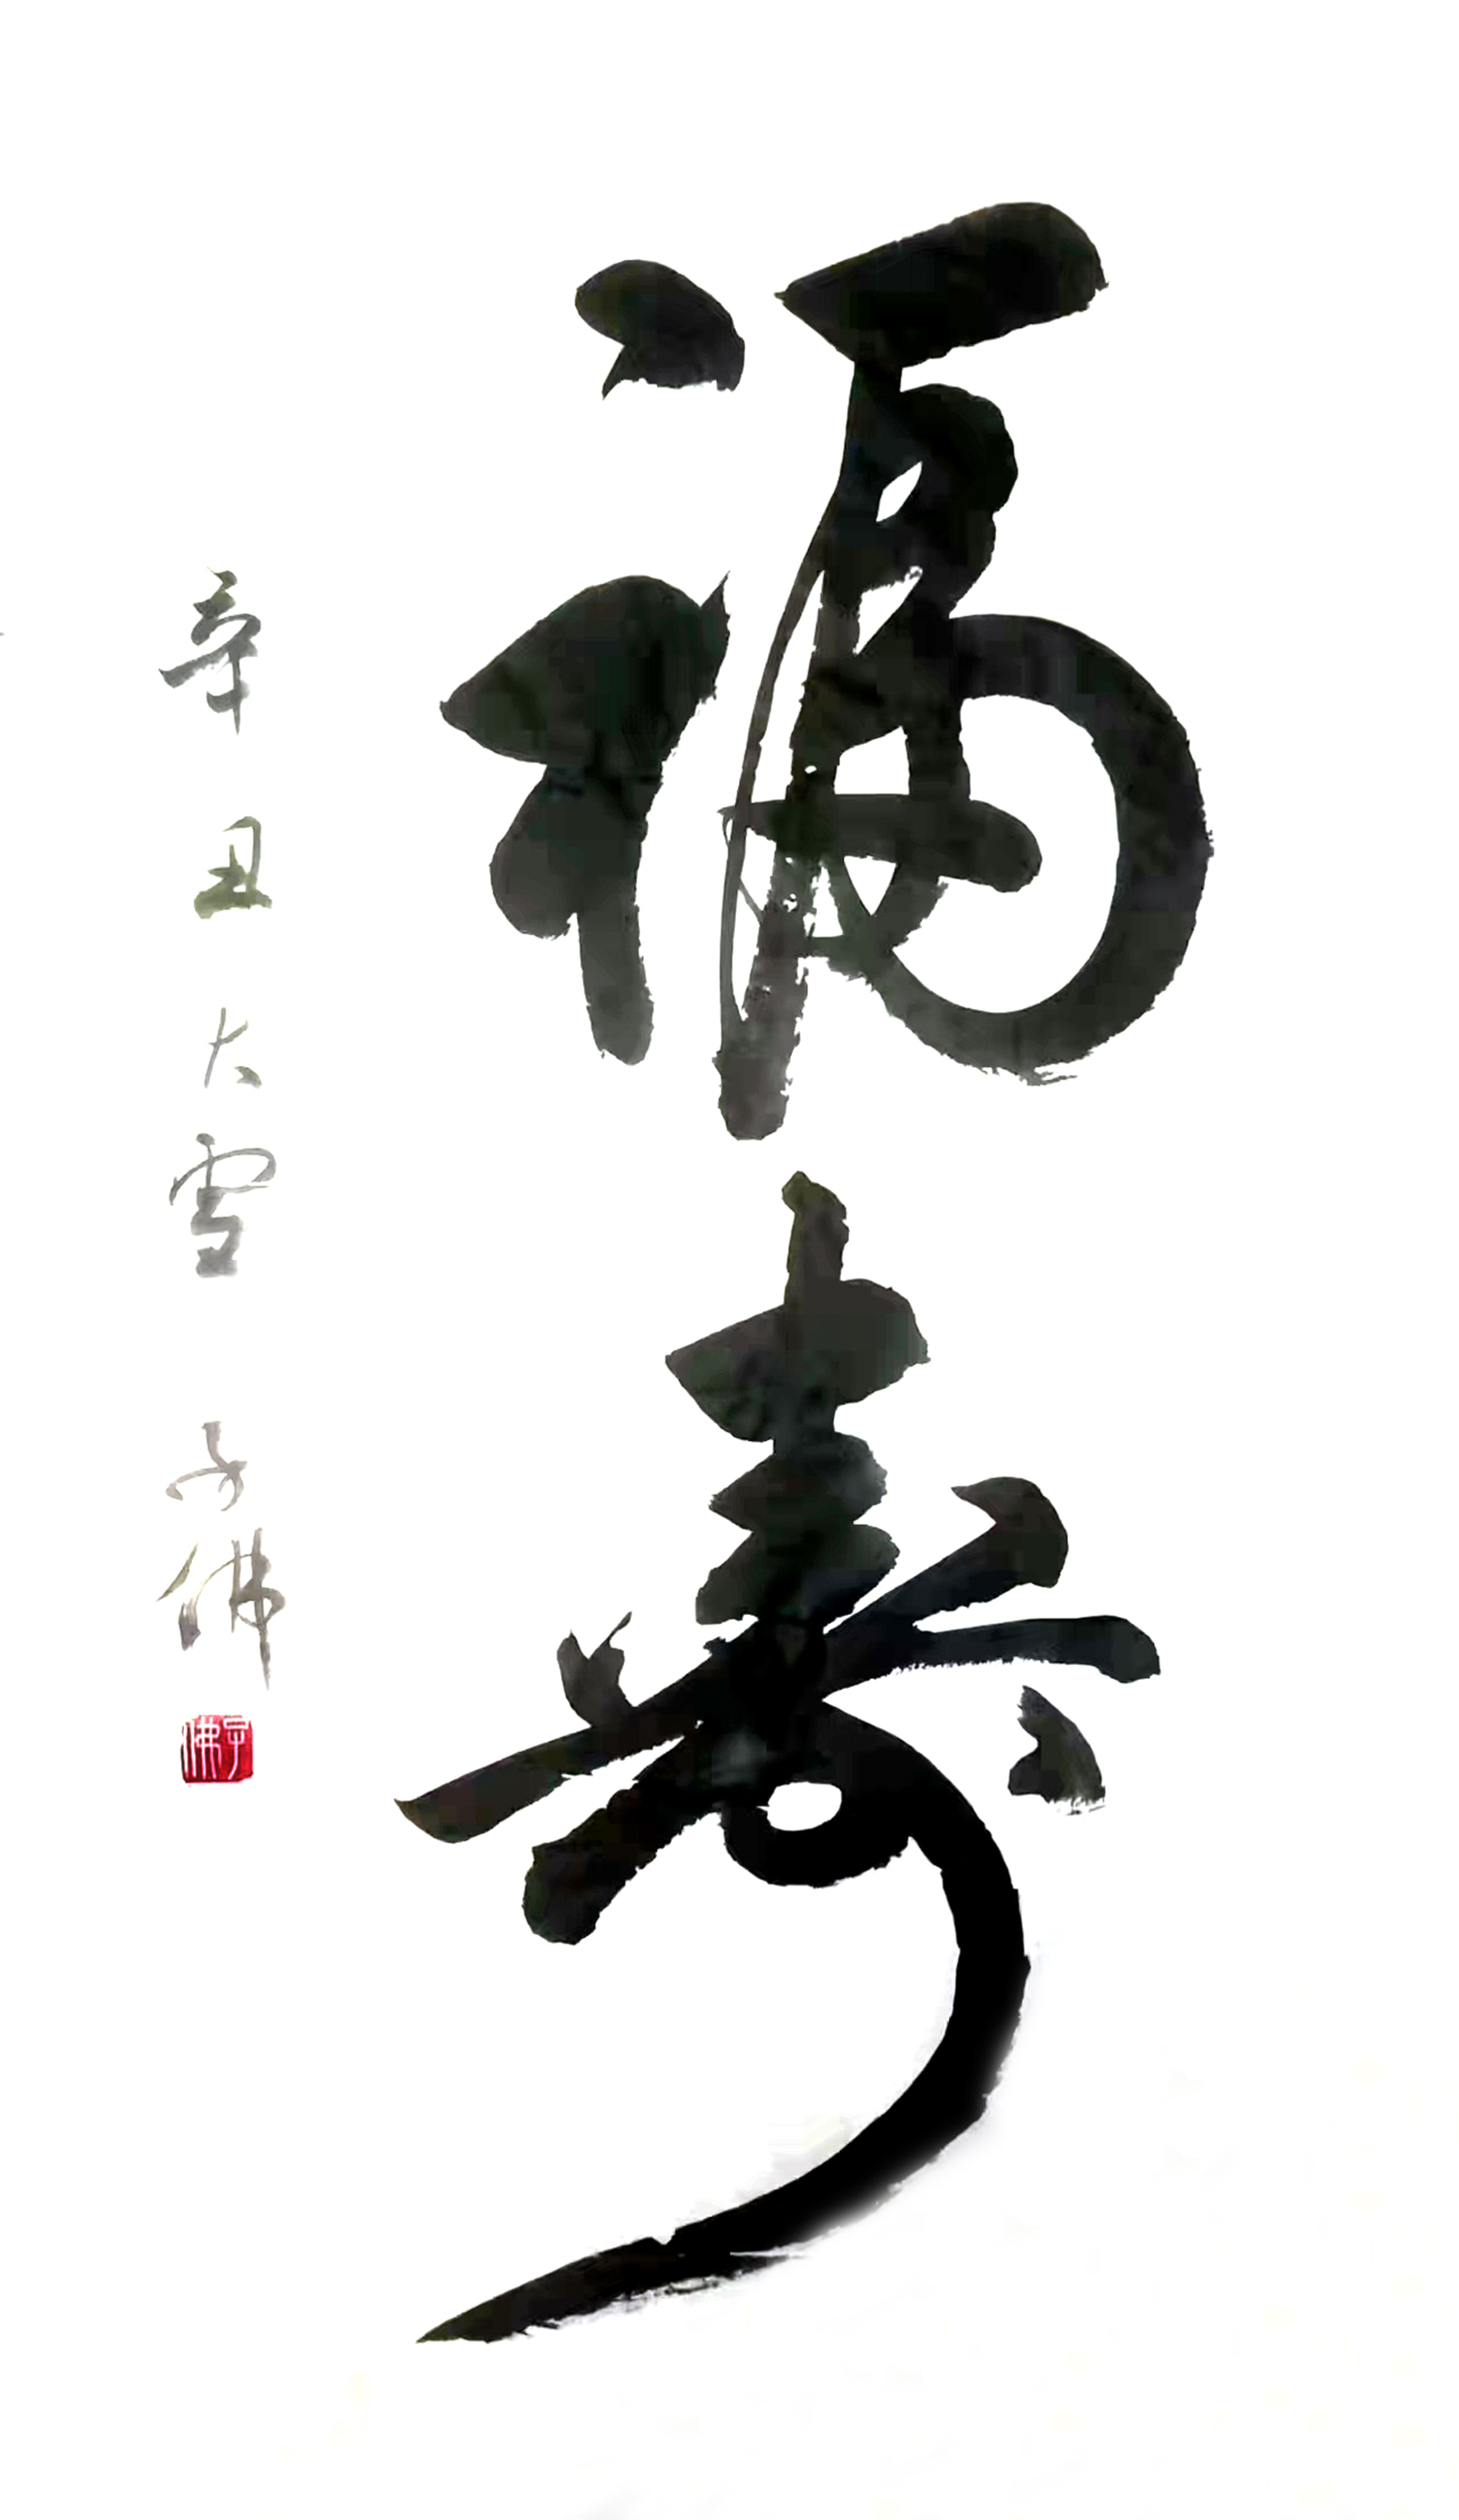 福寿
辛丑大雪 子佛
子佛